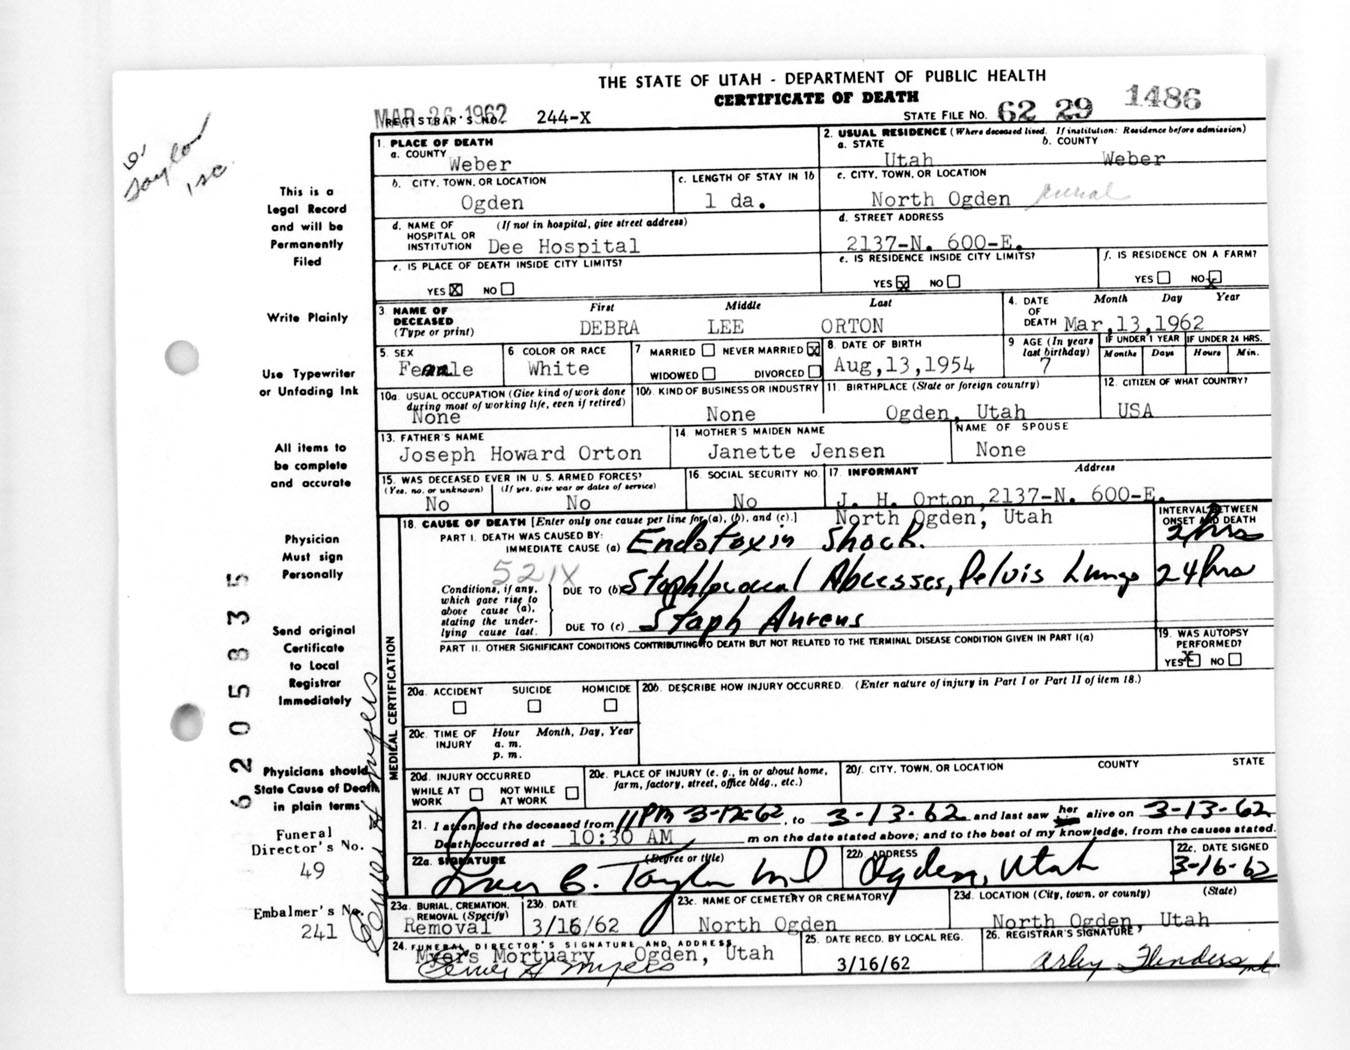 THE STATE OF UTAH - DEPARTMENT OF PUBLIC HEALTH
CERTIFICATE OF DEATH
MAR 26 1962
REGISTRAR'S NO. 244-X
STATE FILE NO. 62 29 1486
Taylor
This is a
Legal Record
and will be
Permanently
Filed
Write Plainly
Use Typewriter
or Unfading Ink
All items to
be complete
and accurate
Physician
Must sign
Personally
Send original
Certificate
to Local
Registrar
Immediately
Physicians should
State Cause of Death
in plain terms
Funeral
Director's No.
49
Embalmer's No.
241
62058335
Elmer H Myers
1. PLACE OF DEATH
a. COUNTY Weber
2. USUAL RESIDENCE (Where deceased lived. If institution: Residence before admission)
a. STATE Utah b. COUNTY Weber
b. CITY, TOWN, OR LOCATION Ogden
c. LENGTH OF STAY IN 1b 1 da.
c. CITY, TOWN, OR LOCATION North Ogden rural
d. NAME OF HOSPITAL OR INSTITUTION (If not in hospital, give street address) Dee Hospital
d. STREET ADDRESS 2137-N. 600-E.
e. IS PLACE OF DEATH INSIDE CITY LIMITS? YES X NO
e. IS RESIDENCE INSIDE CITY LIMITS? YES X NO
f. IS RESIDENCE ON A FARM? YES NO X
3 NAME OF DECEASED (Type or print) First Middle Last
DEBRA LEE ORTON
4. DATE OF DEATH Month Day Year
Mar,13,1962
5. SEX Female
6 COLOR OR RACE White
7 MARRIED NEVER MARRIED X WIDOWED DIVORCED
8. DATE OF BIRTH Aug,13,1954
9 AGE (In years last birthday) 7
IF UNDER 1 YEAR Months Days
IF UNDER 24 HRS. Hours Min.
10a. USUAL OCCUPATION (Give kind of work done during most of working life, even if retired) None
10b. KIND OF BUSINESS OR INDUSTRY None
11. BIRTHPLACE (State or foreign country) Ogden, Utah
12. CITIZEN OF WHAT COUNTRY? USA
13. FATHER'S NAME Joseph Howard Orton
14 MOTHER'S MAIDEN NAME Janette Jensen
NAME OF SPOUSE None
15. WAS DECEASED EVER IN U. S. ARMED FORCES?
(Yes, no, or unknown) (If yes, give war or dates of service)
No No
16. SOCIAL SECURITY NO. No
17. INFORMANT Address
J. H. Orton, 2137-N. 600-E.
North Ogden, Utah
18. CAUSE OF DEATH [Enter only one cause per line for (a), (b), and (c).]
INTERVAL BETWEEN ONSET AND DEATH
PART I. DEATH WAS CAUSED BY:
IMMEDIATE CAUSE (a) Endotoxin Shock. 2 hrs
521X
Conditions, if any, which gave rise to above cause (a), stating the underlying cause last.
DUE TO (b) Staphlococcal Abcesses, Pelvis Lungs 24 hrs
DUE TO (c) Staph Aureus
PART II. OTHER SIGNIFICANT CONDITIONS CONTRIBUTING TO DEATH BUT NOT RELATED TO THE TERMINAL DISEASE CONDITION GIVEN IN PART I(a)
19. WAS AUTOPSY PERFORMED? YES X NO
MEDICAL CERTIFICATION
20a. ACCIDENT SUICIDE HOMICIDE
20b. DESCRIBE HOW INJURY OCCURRED. (Enter nature of injury in Part I or Part II of item 18.)
20c. TIME OF INJURY Hour Month, Day, Year
a. m.
p. m.
20d. INJURY OCCURRED
WHILE AT WORK NOT WHILE AT WORK
20e. PLACE OF INJURY (e. g., in or about home, farm, factory, street, office bldg., etc.)
20f. CITY, TOWN, OR LOCATION COUNTY STATE
21. I attended the deceased from 11PM 3-12-62, to 3-13-62 and last saw her alive on 3-13-62
Death occurred at 10:30 AM m on the date stated above; and to the best of my knowledge, from the causes stated.
22a. SIGNATURE (Degree or title) C. Taylor MD
22b. ADDRESS Ogden, Utah
22c. DATE SIGNED 3-16-62
23a. BURIAL, CREMATION, REMOVAL (Specify) Removal
23b. DATE 3/16/62
23c. NAME OF CEMETERY OR CREMATORY North Ogden
23d. LOCATION (City, town, or county) (State) North Ogden, Utah
24. FUNERAL DIRECTOR'S SIGNATURE AND ADDRESS
Myers Mortuary Ogden, Utah
Elmer H Myers
25. DATE RECD. BY LOCAL REG. 3/16/62
26. REGISTRAR'S SIGNATURE Arley Flinders